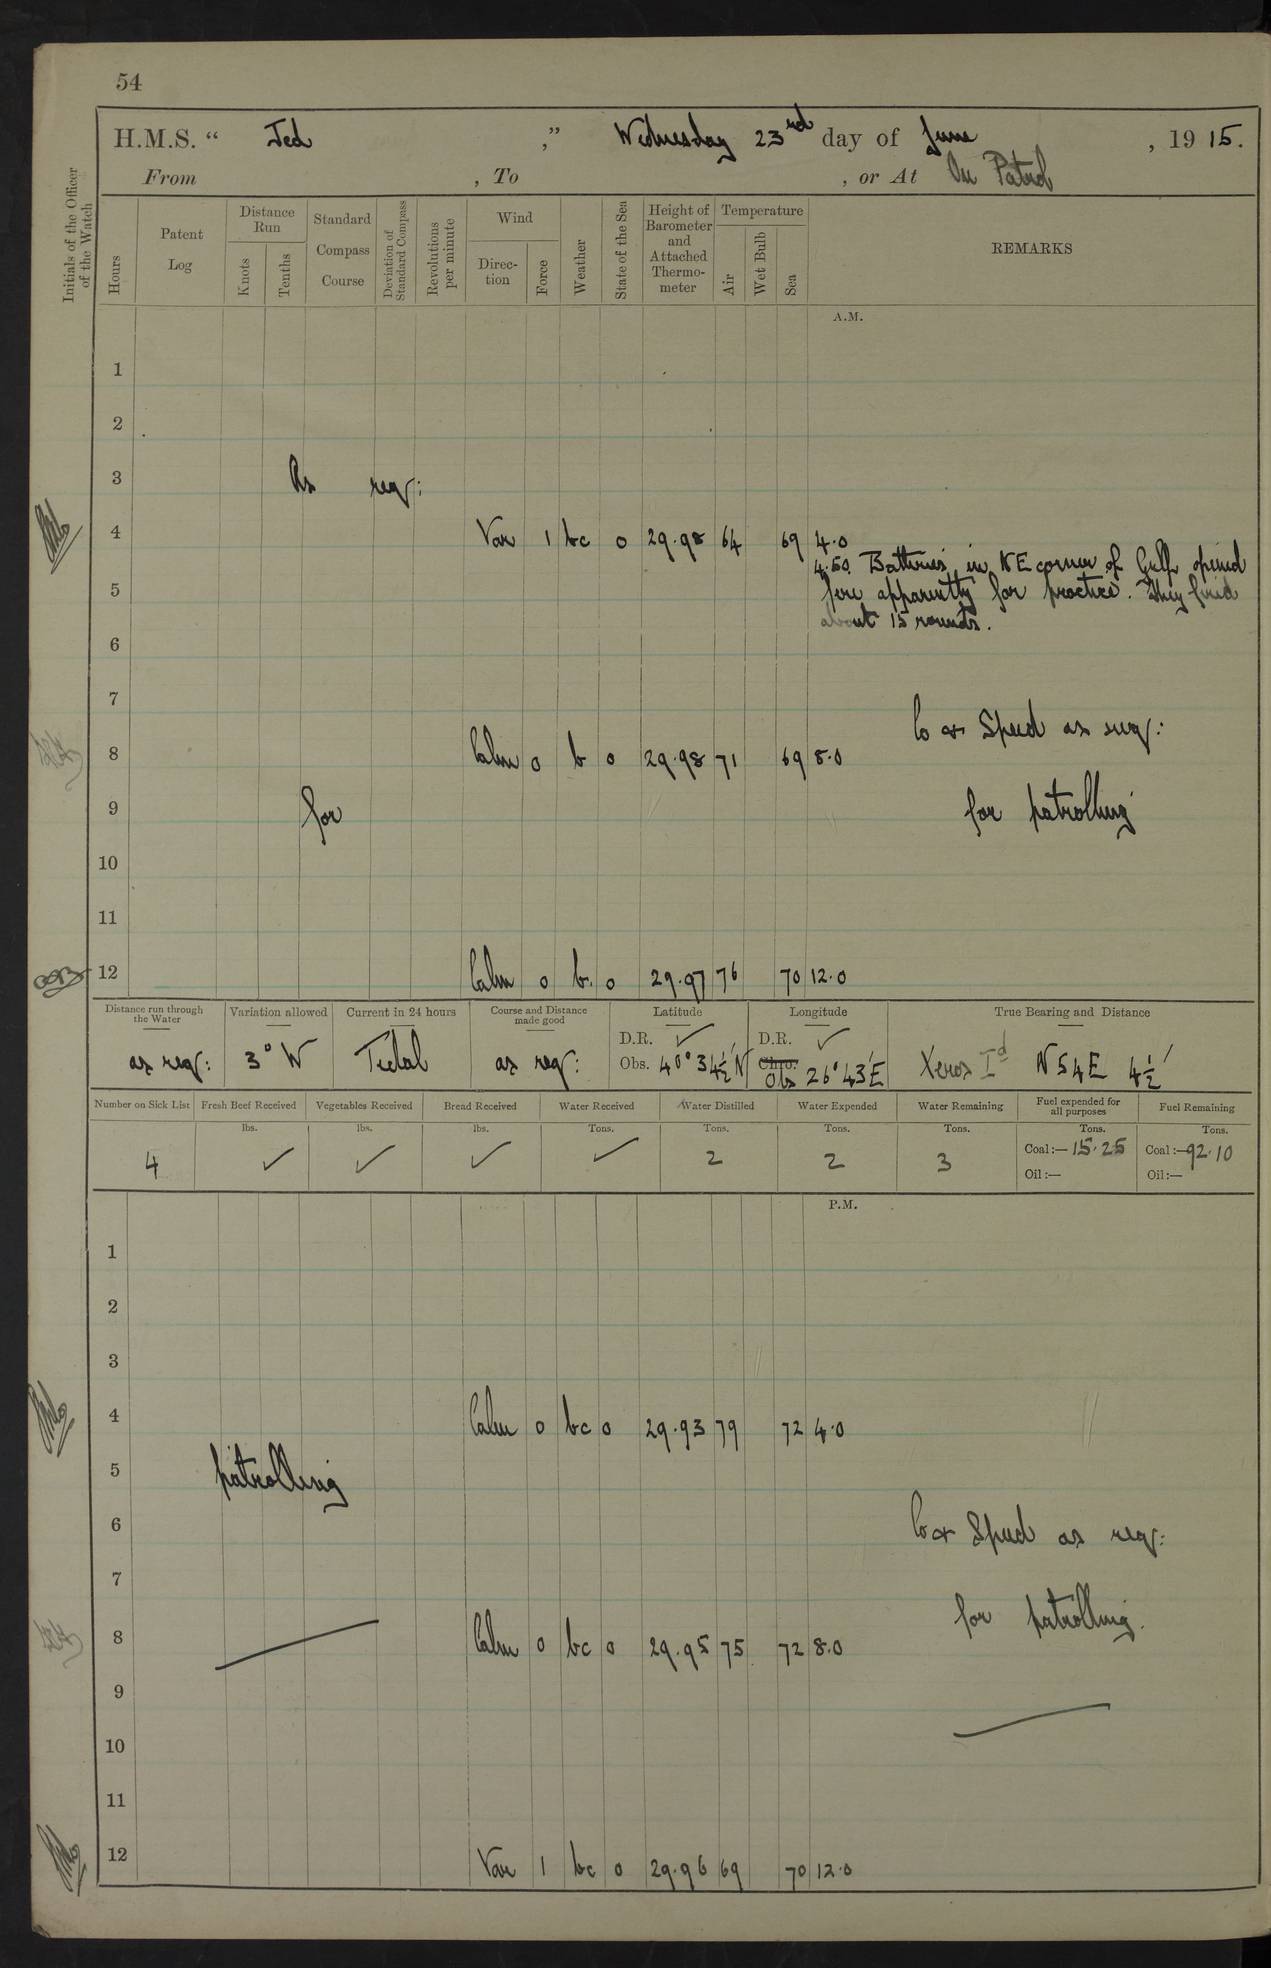 54
H.M.S. “ Jed ,” Wednesday 23rd day of June , 19 15.
From , To , or At On Patrol
Initials of the Officer of the Watch
Hours
Patent Log
Distance Run
Knots
Tenths
Standard Compass Course
Deviation of Standard Compass
Revolutions per minute
Wind
Direc-tion
Force
Weather
State of the Sea
Height of Barometer and Attached Thermo-meter
Temperature
Air
Wet Bulb
Sea
REMARKS
A.M.
1
2
3 As req:
4 Var 1 bc 0 29.98 64 69 4.0
4.50 Batteries in NE corner of Gulf opened
5 fire apparently for practice. They fired
about 15 rounds.
6
7
Co & Speed as req:
8 Calm 0 b 0 29.98 71 69 8.0
9 for for patrolling
10
11
12 Calm 0 b. 0 29.97 76 70 12.0
Distance run through the Water
as req:
Variation allowed
3° W
Current in 24 hours
Tidal
Course and Distance made good
as req:
Latitude
D.R. ✓
Obs. 40° 34½' N
Longitude
D.R. ✓
Chro.
Obs 26° 43' E
True Bearing and Distance
Xeros Id N54E 4½'
Number on Sick List
4
Fresh Beef Received
lbs.
✓
Vegetables Received
lbs.
✓
Bread Received
lbs.
✓
Water Received
Tons.
✓
Water Distilled
Tons.
2
Water Expended
Tons.
2
Water Remaining
Tons.
3
Fuel expended for all purposes
Tons.
Coal:— 15.25
Oil:—
Fuel Remaining
Tons.
Coal:— 92.10
Oil:—
P.M.
1
2
3
4 Calm 0 bc 0 29.93 79 72 4.0
5 patrolling
6 Co & Speed as req:
7
for patrolling.
8 Calm 0 bc 0 29.95 75 72 8.0
9
10
11
12 Var 1 bc 0 29.96 69 70 12.0